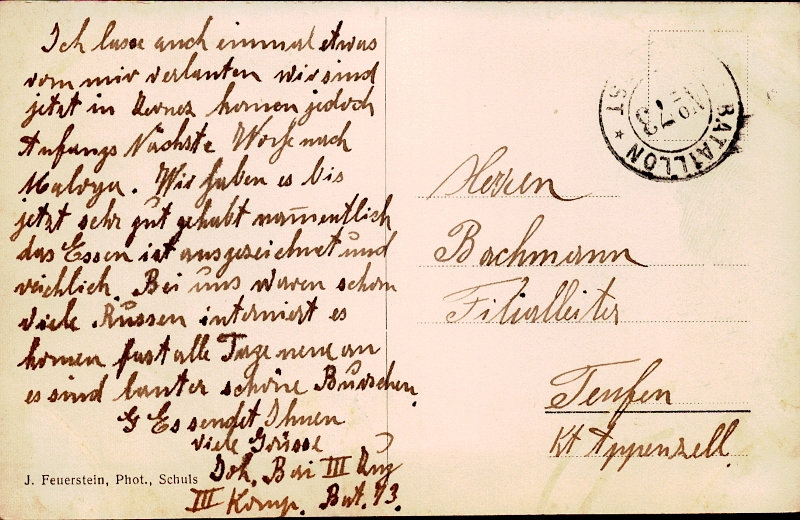 Ich lasse auch einmal etwas
von mir verlauten wir sind
jetzt in Zernez komen jedoch
Anfangs Nächste Woche nach
Maloya. Wir haben es bis
jetzt sehr gut gehabt namentlich
das Essen ist ausgezeichnet und
reichlich. Bei uns waren schon
viele Russen interniert es
komen fast alle Tage neue an
es sind lauter schöne Burschen.
Es sendet Ihnen
viele Grüsse
Joh. Bai III Zug
III Komp. Bat. 73.
J. Feuerstein, Phot., Schuls
BATAILLON
No 73
ST ★
Herren
Bachmann
Filialleiter
Teufen
Kt Appenzell.